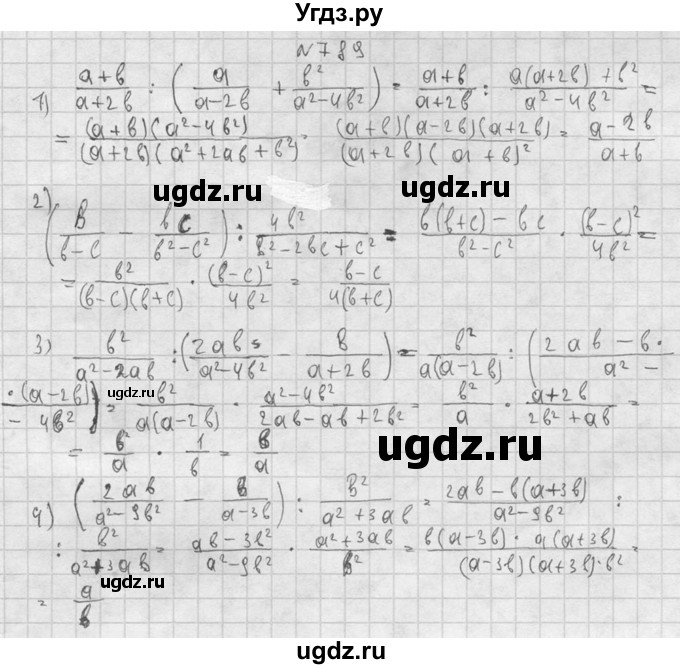 Угдз.ру
N789
1) (a+b)/(a+2b) : (a/(a-2b) + b²/(a²-4b²)) = (a+b)/(a+2b) : (a(a+2b)+b²)/(a²-4b²) =
= (a+b)(a²-4b²)/((a+2b)(a²+2ab+b²)) (a+b)(a-2b)(a+2b)/((a+2b)(a+b)²) = (a-2b)/(a+b)
ugdz.ru
ugdz.ru
2) (b/(b-c) - bc/(b²-c²)) : 4b²/(b²-2bc+c²) = (b(b+c)-bc)/(b²-c²) · (b-c)²/4b² =
= b²/((b-c)(b+c)) · (b-c)²/4b² = (b-c)/(4(b+c))
3) b²/(a²-2ab) : (2ab/(a²-4b²) - b/(a+2b)) = b²/(a(a-2b)) : (2ab-b·/a²-
·(a-2b)/-4b²) = b²/(a(a-2b)) · (a²-4b²)/(2ab-ab+2b²) = b²/a · (a+2b)/(2b²+ab) =
ugdz.ru
ugdz.ru
= b²/a · 1/b = b/a
4) (2ab/(a²-9b²) - b/(a-3b)) : b²/(a²+3ab) = (2ab-b(a+3b))/(a²-9b²) :
: b²/(a²+3ab) = (ab-3b²)/(a²-9b²) · (a²+3ab)/b² = b(a-3b)·a(a+3b)/((a-3b)(a+3b)·b²) =
ugdz.ru
ugdz.ru
= a/b
ugdz.ru